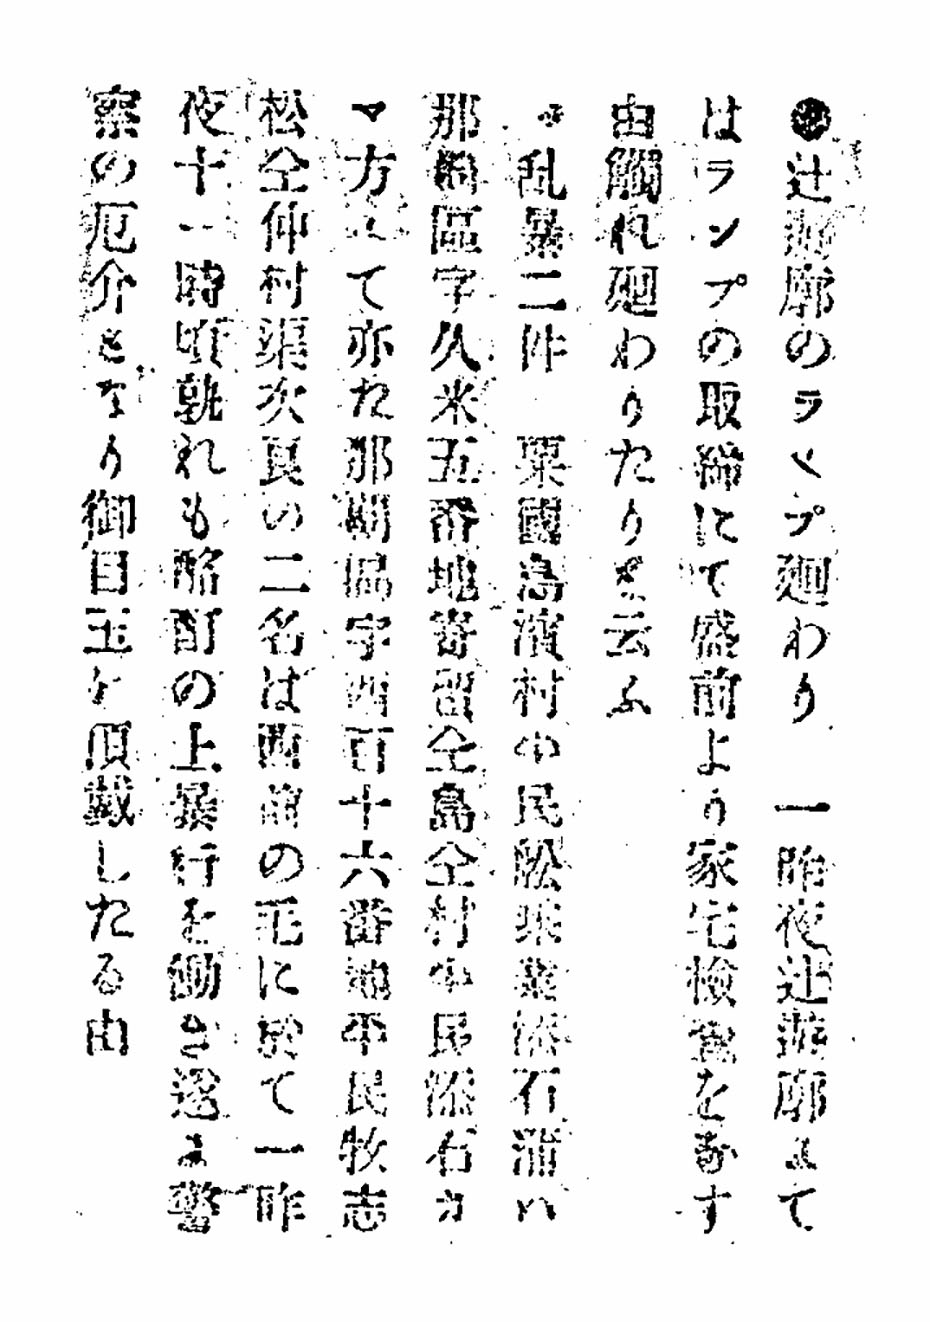 ●辻遊廓のランプ廻わり　一昨夜辻遊廓にて
はランプの取締にて盛前より家宅檢査をなす
由觸れ廻わりたりと云ふ
乱暴二件　粟國島濱村平民 添石蒲ハ
那覇區字久米五番地寄留仝島仝村平民添石カ
マ方にて亦た那覇區字西百十六番地平民牧志
松仝仲村渠次良の二名は西前の毛に於て一昨
夜十一時頃孰れも酩酊の上暴行を働き遂に警
察の厄介となり御目玉ケ頂戴したる由